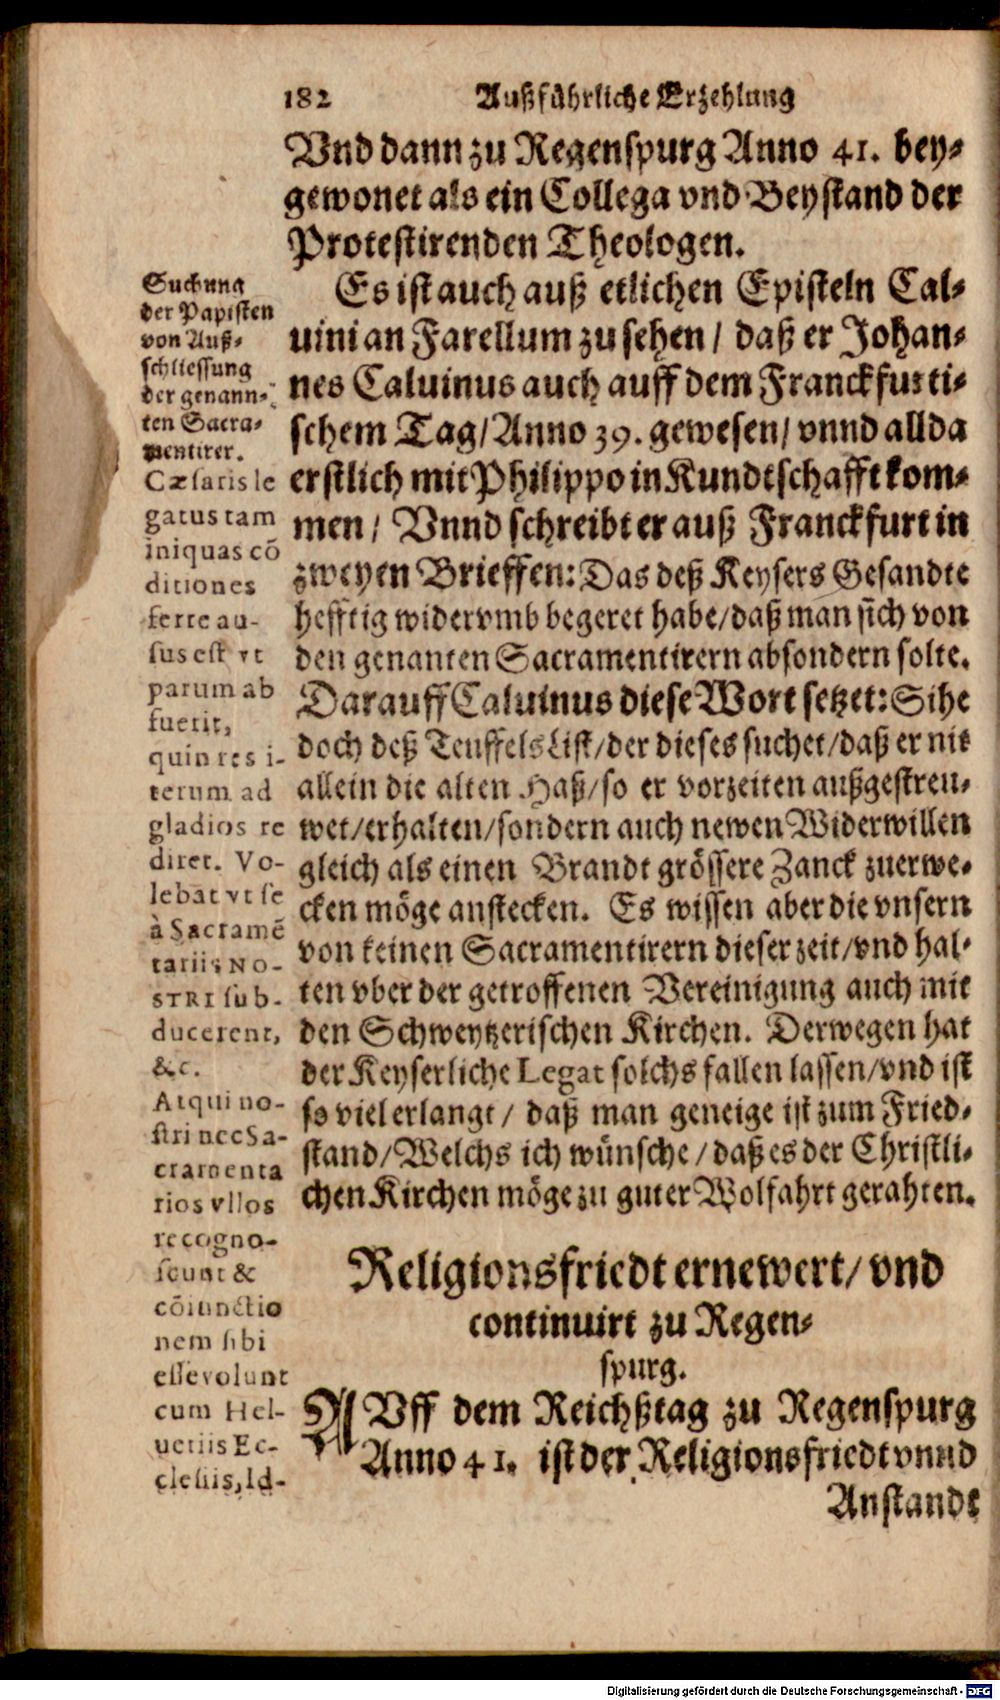 182 Außführliche Erzehlung
Vnd dann zu Regenspurg Anno 41. bey-
gewonet als ein Collega vnd Beystand der
Protestirenden Theologen.
Es ist auch auß etlichen Episteln Cal-
uini an Farellum zu sehen / daß er Johan-
nes Caluinus auch auff dem Franckfurti-
schem Tag / Anno 39. gewesen / vnnd allda
erstlich mit Philippo in Kundtschafft kom-
men / Vnnd schreibt er auß Franckfurt in
zweyen Brieffen: Das deß Keysers Gesandte
hefftig widervmb begeret habe / daß man sich von
den genanten Sacramentirern absondern solte.
Darauff Caluinus diese Wort setzet: Sihe
doch deß Teuffels List / der dieses suchet / daß er nit
allein die alten Haß / so er vorzeiten außgestreu-
wet / erhalten / sondern auch newen Widerwillen
gleich als einen Brandt grössere Zanck zuerwe-
cken möge anstecken. Es wissen aber die vnsern
von keinen Sacramentirern dieser zeit / vnd hal-
ten vber der getroffenen Vereinigung auch mit
den Schweytzerischen Kirchen. Derwegen hat
der Keyserliche Legat solchs fallen lassen / vnd ist
so viel erlangt / daß man geneige ist zum Fried-
stand / Welchs ich wünsche / daß es der Christli-
chen Kirchen möge zu guter Wolfahrt gerahten.
Religionsfriedt ernewert / vnd
continuirt zu Regen-
spurg.
AVff dem Reichßtag zu Regenspurg
Anno 41. ist der Religionsfriedt vnnd
Anstandt
Suchung
der Papisten
von Auß-
schliessung
der genann-
ten Sacra-
mentirer.
Cæsaris le
gatus tam
iniquas cō
ditiones
ferre au-
sus est vt
parum ab
fuerit,
quin res i-
terum ad
gladios re
diret. Vo-
lebat vt se
à Sacramē
tariis NO-
STRI sub-
ducerent,
&c.
Atqui no-
stri nec Sa-
cramenta
rios vllos
recogno-
scunt &
cōiunctio
nem sibi
esse volunt
cum Hel-
uetiis Ec-
clesiis, Id-
Digitalisierung gefördert durch die Deutsche Forschungsgemeinschaft - DFG